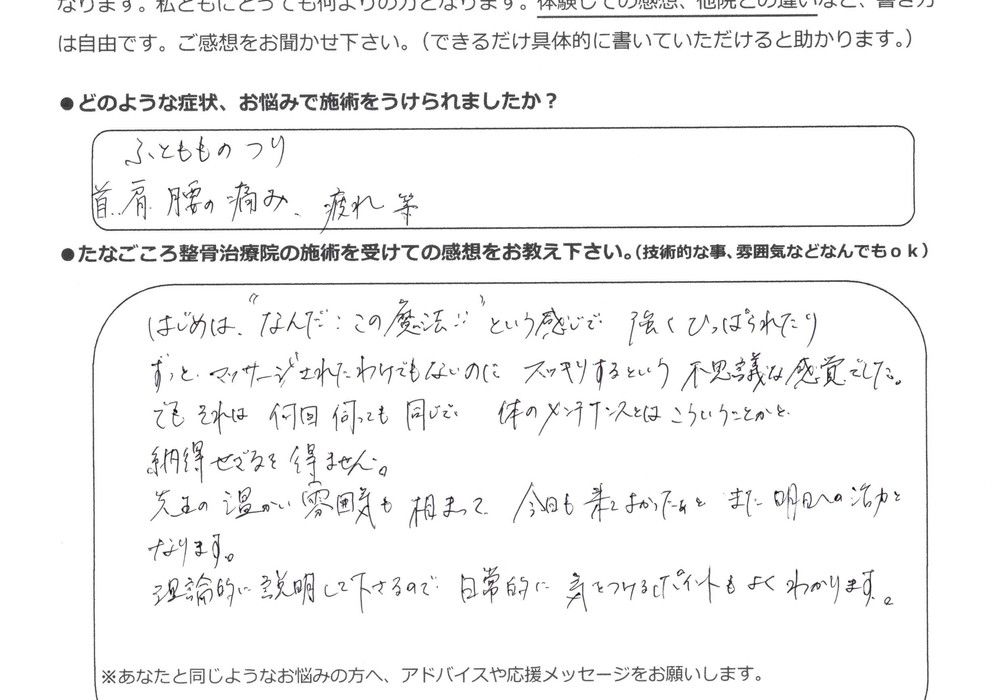 なります。私どもにとっても何よりの力となります。体験しての感想、他院との違いなど、書き方
は自由です。ご感想をお聞かせ下さい。（できるだけ具体的に書いていただけると助かります。）
●どのような症状、お悩みで施術をうけられましたか？
ふとももの つり
首、肩、腰の痛み、疲れ 等
●たなごころ整骨治療院の施術を受けての感想をお教え下さい。（技術的な事、雰囲気などなんでもok）
はじめは、“なんだ!この魔法!!”という感じで 強くひっぱられたり
ずっと、マッサージされたわけでもないのに スッキリするという 不思議な感覚でした。
でも それは 何回 伺っても 同じで、 体のメンテナンスとは こういうことかと
納得せざるを 得ません。
先生の 温かい 雰囲気も 相まって、 今日も 来てよかったぁと また 明日への活力と
なります。
理論的に 説明して下さるので 日常的に 気をつけるポイントも よく わかります。
※あなたと同じようなお悩みの方へ、アドバイスや応援メッセージをお願いします。